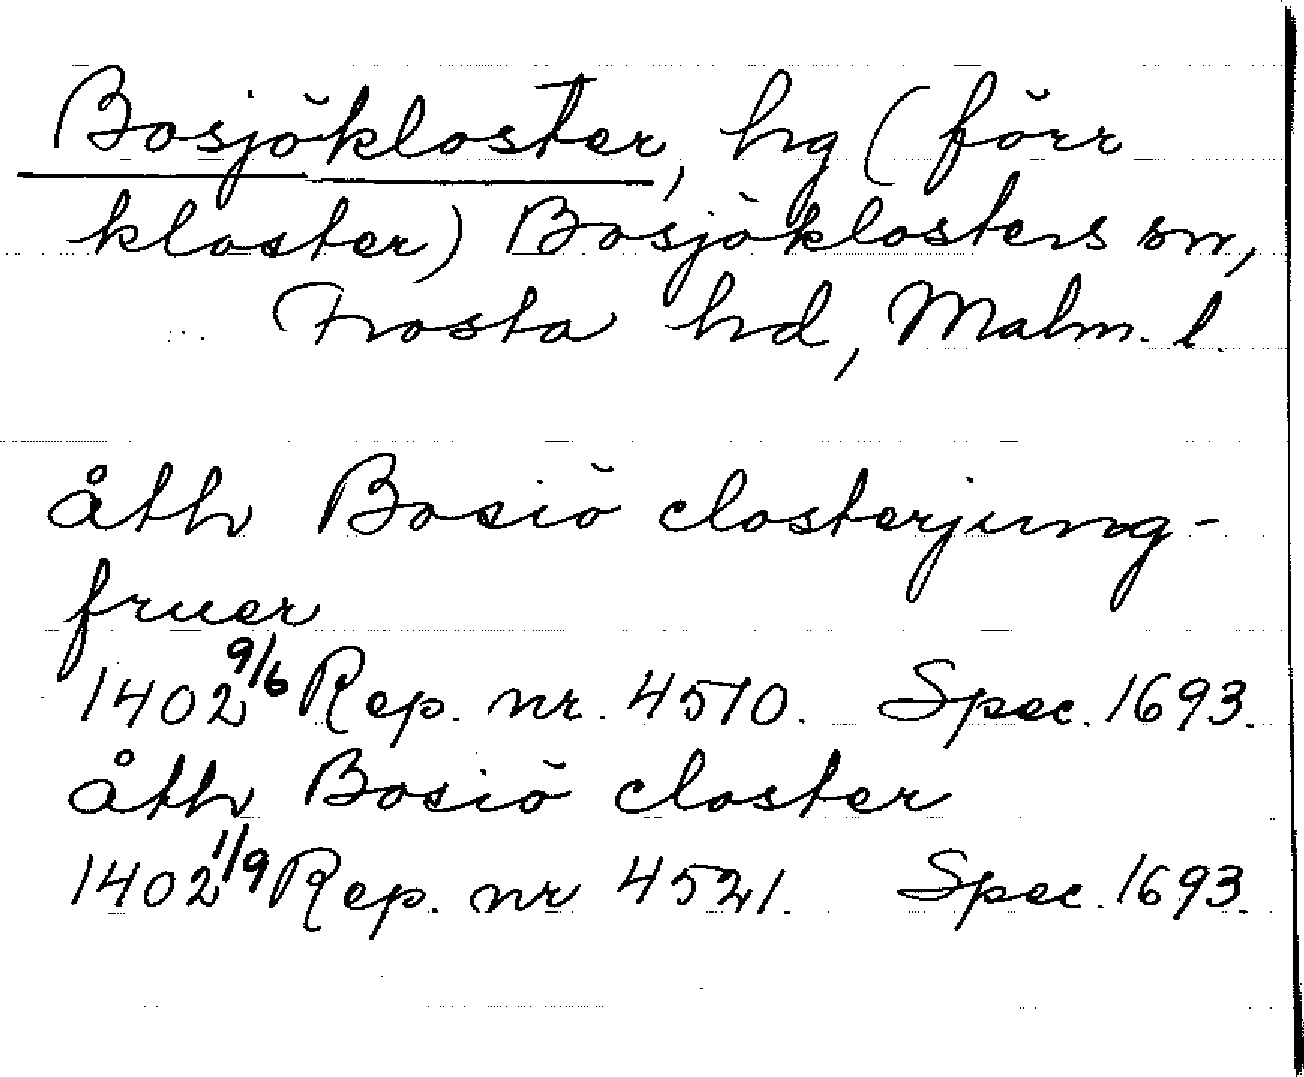 Bosjökloster, hg (förr
kloster) Bosjöklosters sn,
Frosta hd, Malm. l.
åth Bosiö closterjung-
fruer
1402 9/6 Rep. nr. 4510. Spec. 1693.
åth Bosiö closter
1402 1/9 Rep. nr 4521. Spec. 1693.